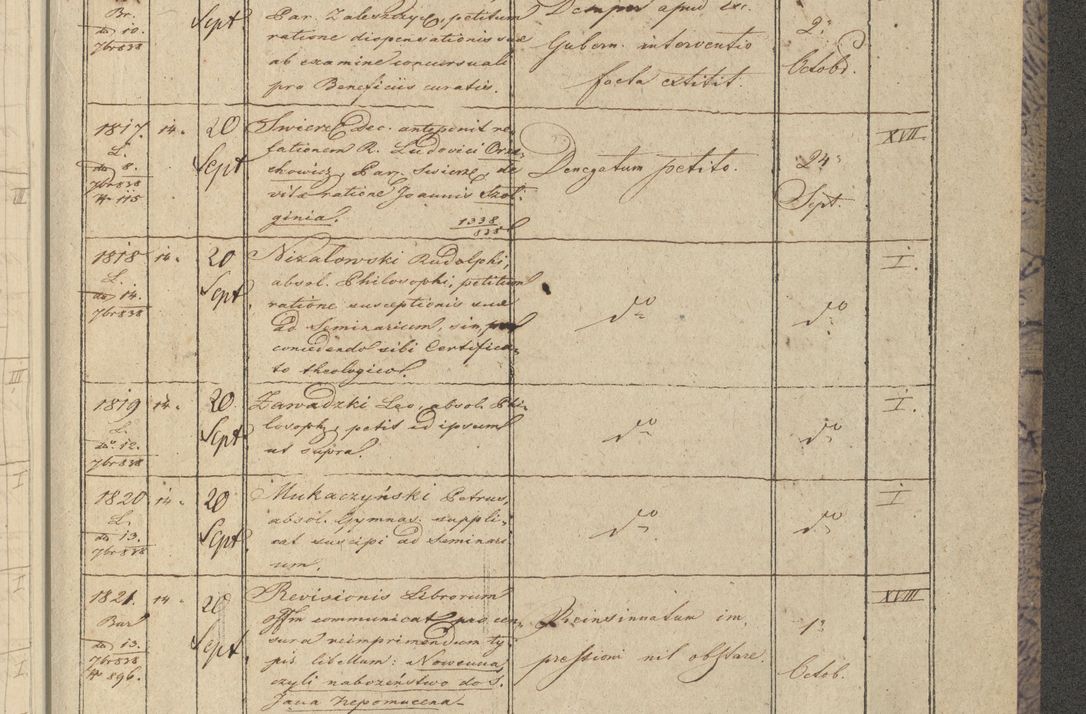 Br.
dto 10.
7br 838
Sept.
Par. Zaleszczyc, petitum
ratione dispensationis suae
ab examine concursuali
pro Beneficiis curatis.
apud exc.
Gubern. interventio
facta extitit.
2a
Octobr.
1817. 14. 20 Sept.
L.
dto 8.
7br 838
N 115
Swierz Dec. anteponit re-
lationem R. Ludovici Orze-
chowicz, Par. Swierz, de
vita ratione Joannis Szol-
ginia.
1338
838
Denegatum petito.
24a
Sept.
XVII
1818 14. 20 Sept.
L.
dto 14.
7br 838
Nizalowski Rudolphi
absol. Philosophi, petitum
ratione susceptionis suae
ad Seminarium, simul
concedendo sibi Certifica-
to theologico.
do
do
I.
1819 14. 20 Sept.
L.
dto 12.
7br 838
Zawadzki Leo, absol. Phi-
losoph, petit id ipsum
ut supra.
do
do
I.
1820 14. 20 Sept.
L.
dto 13.
7br 838
Mukaczyński Petrus,
absol. Gymnas. suppli-
cat suscipi ad Seminari-
um.
do
do
I
1821. 14. 20 Sept.
dto 13.
7br 838
N 896.
Revisionis Librorum
Offm communicat pro cen-
sura reimprimendum ty-
pis libellum: Nowenna
czyli nabożeństwo do S.
Jana Nepomucena.
Reinsinuatum im-
pressioni nil obstare.
1a
Octob.
XVIII
III
III
I
I
I